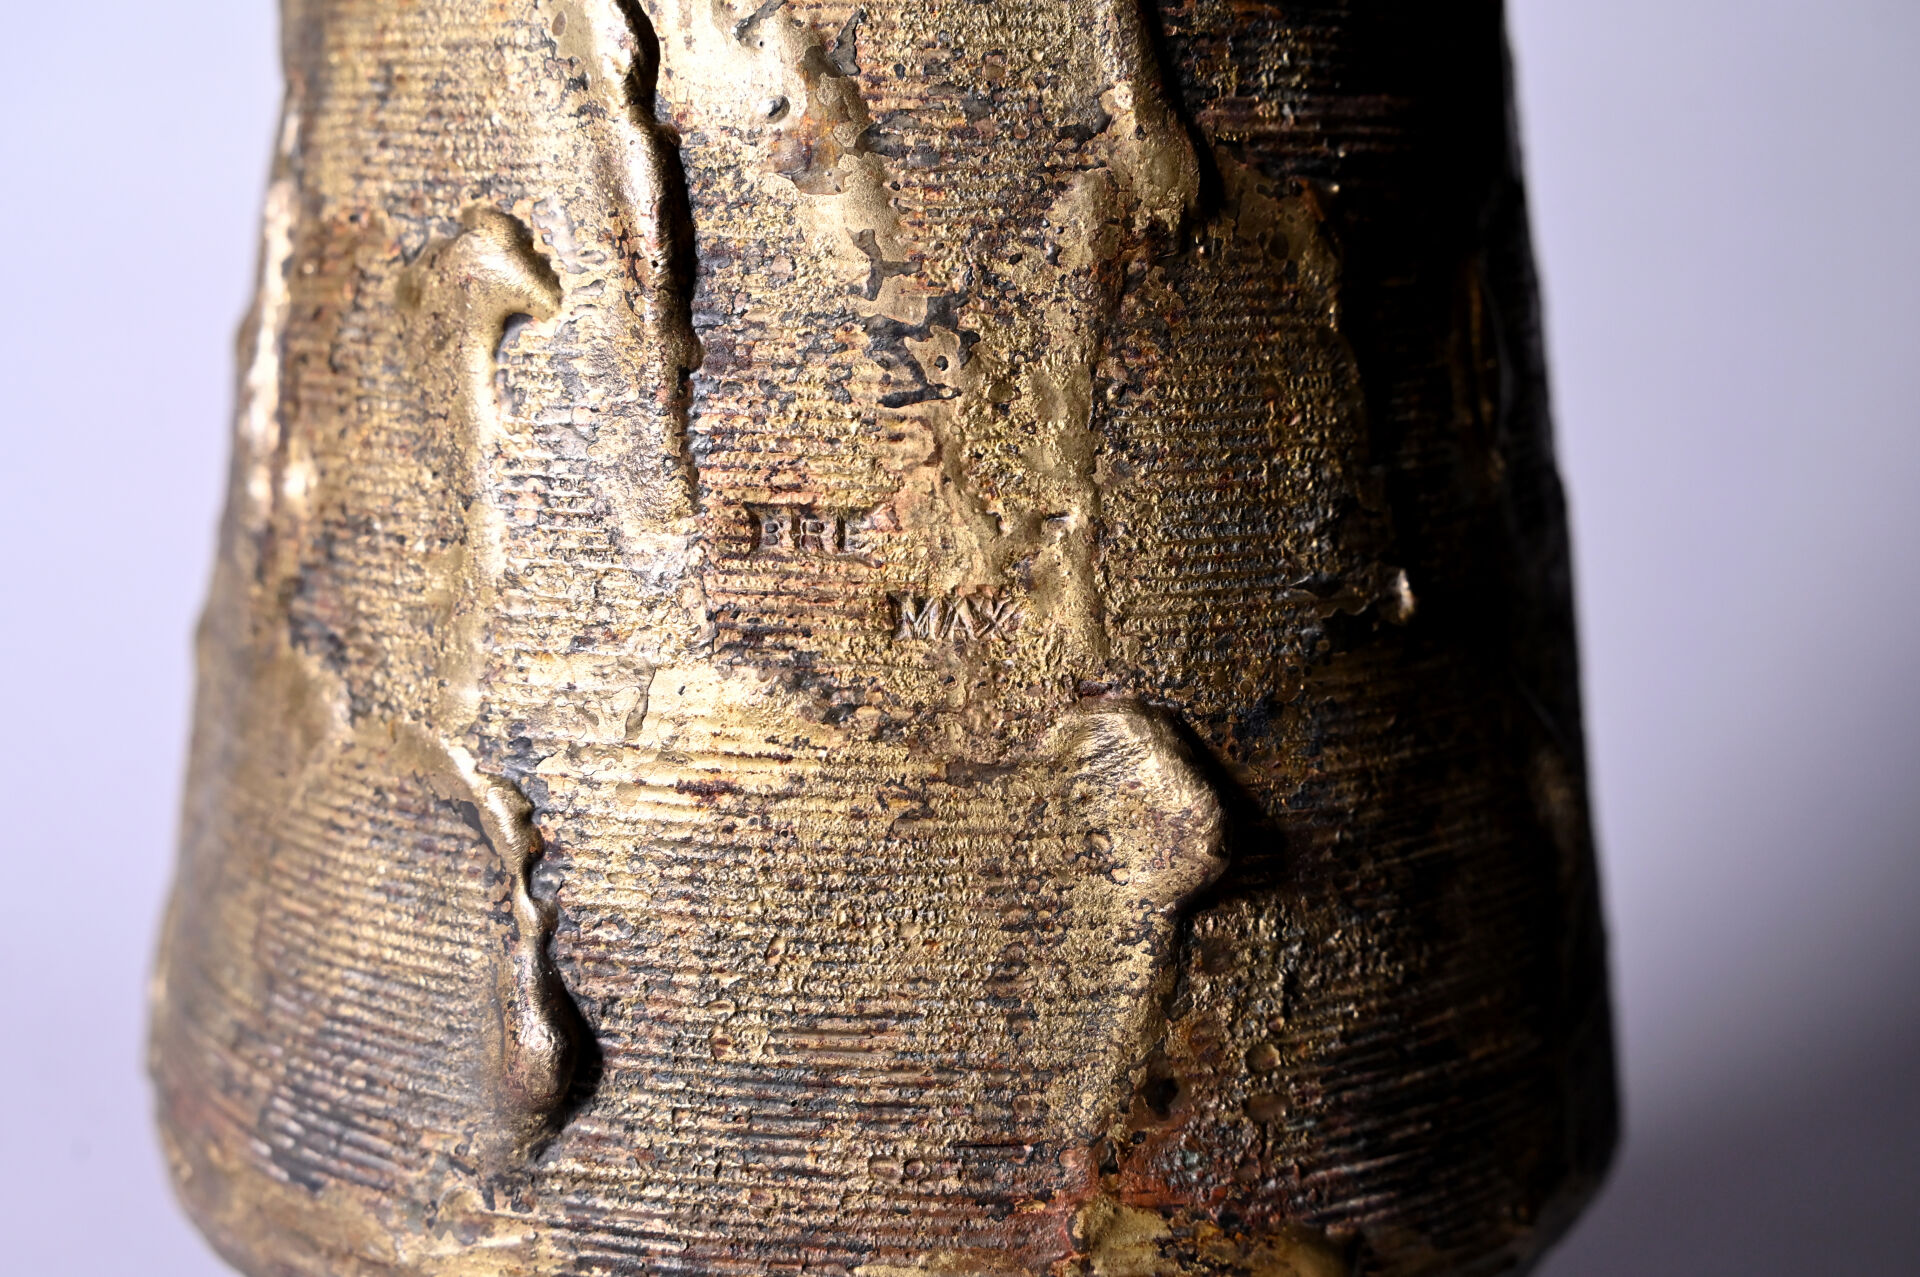 BRE
MAX